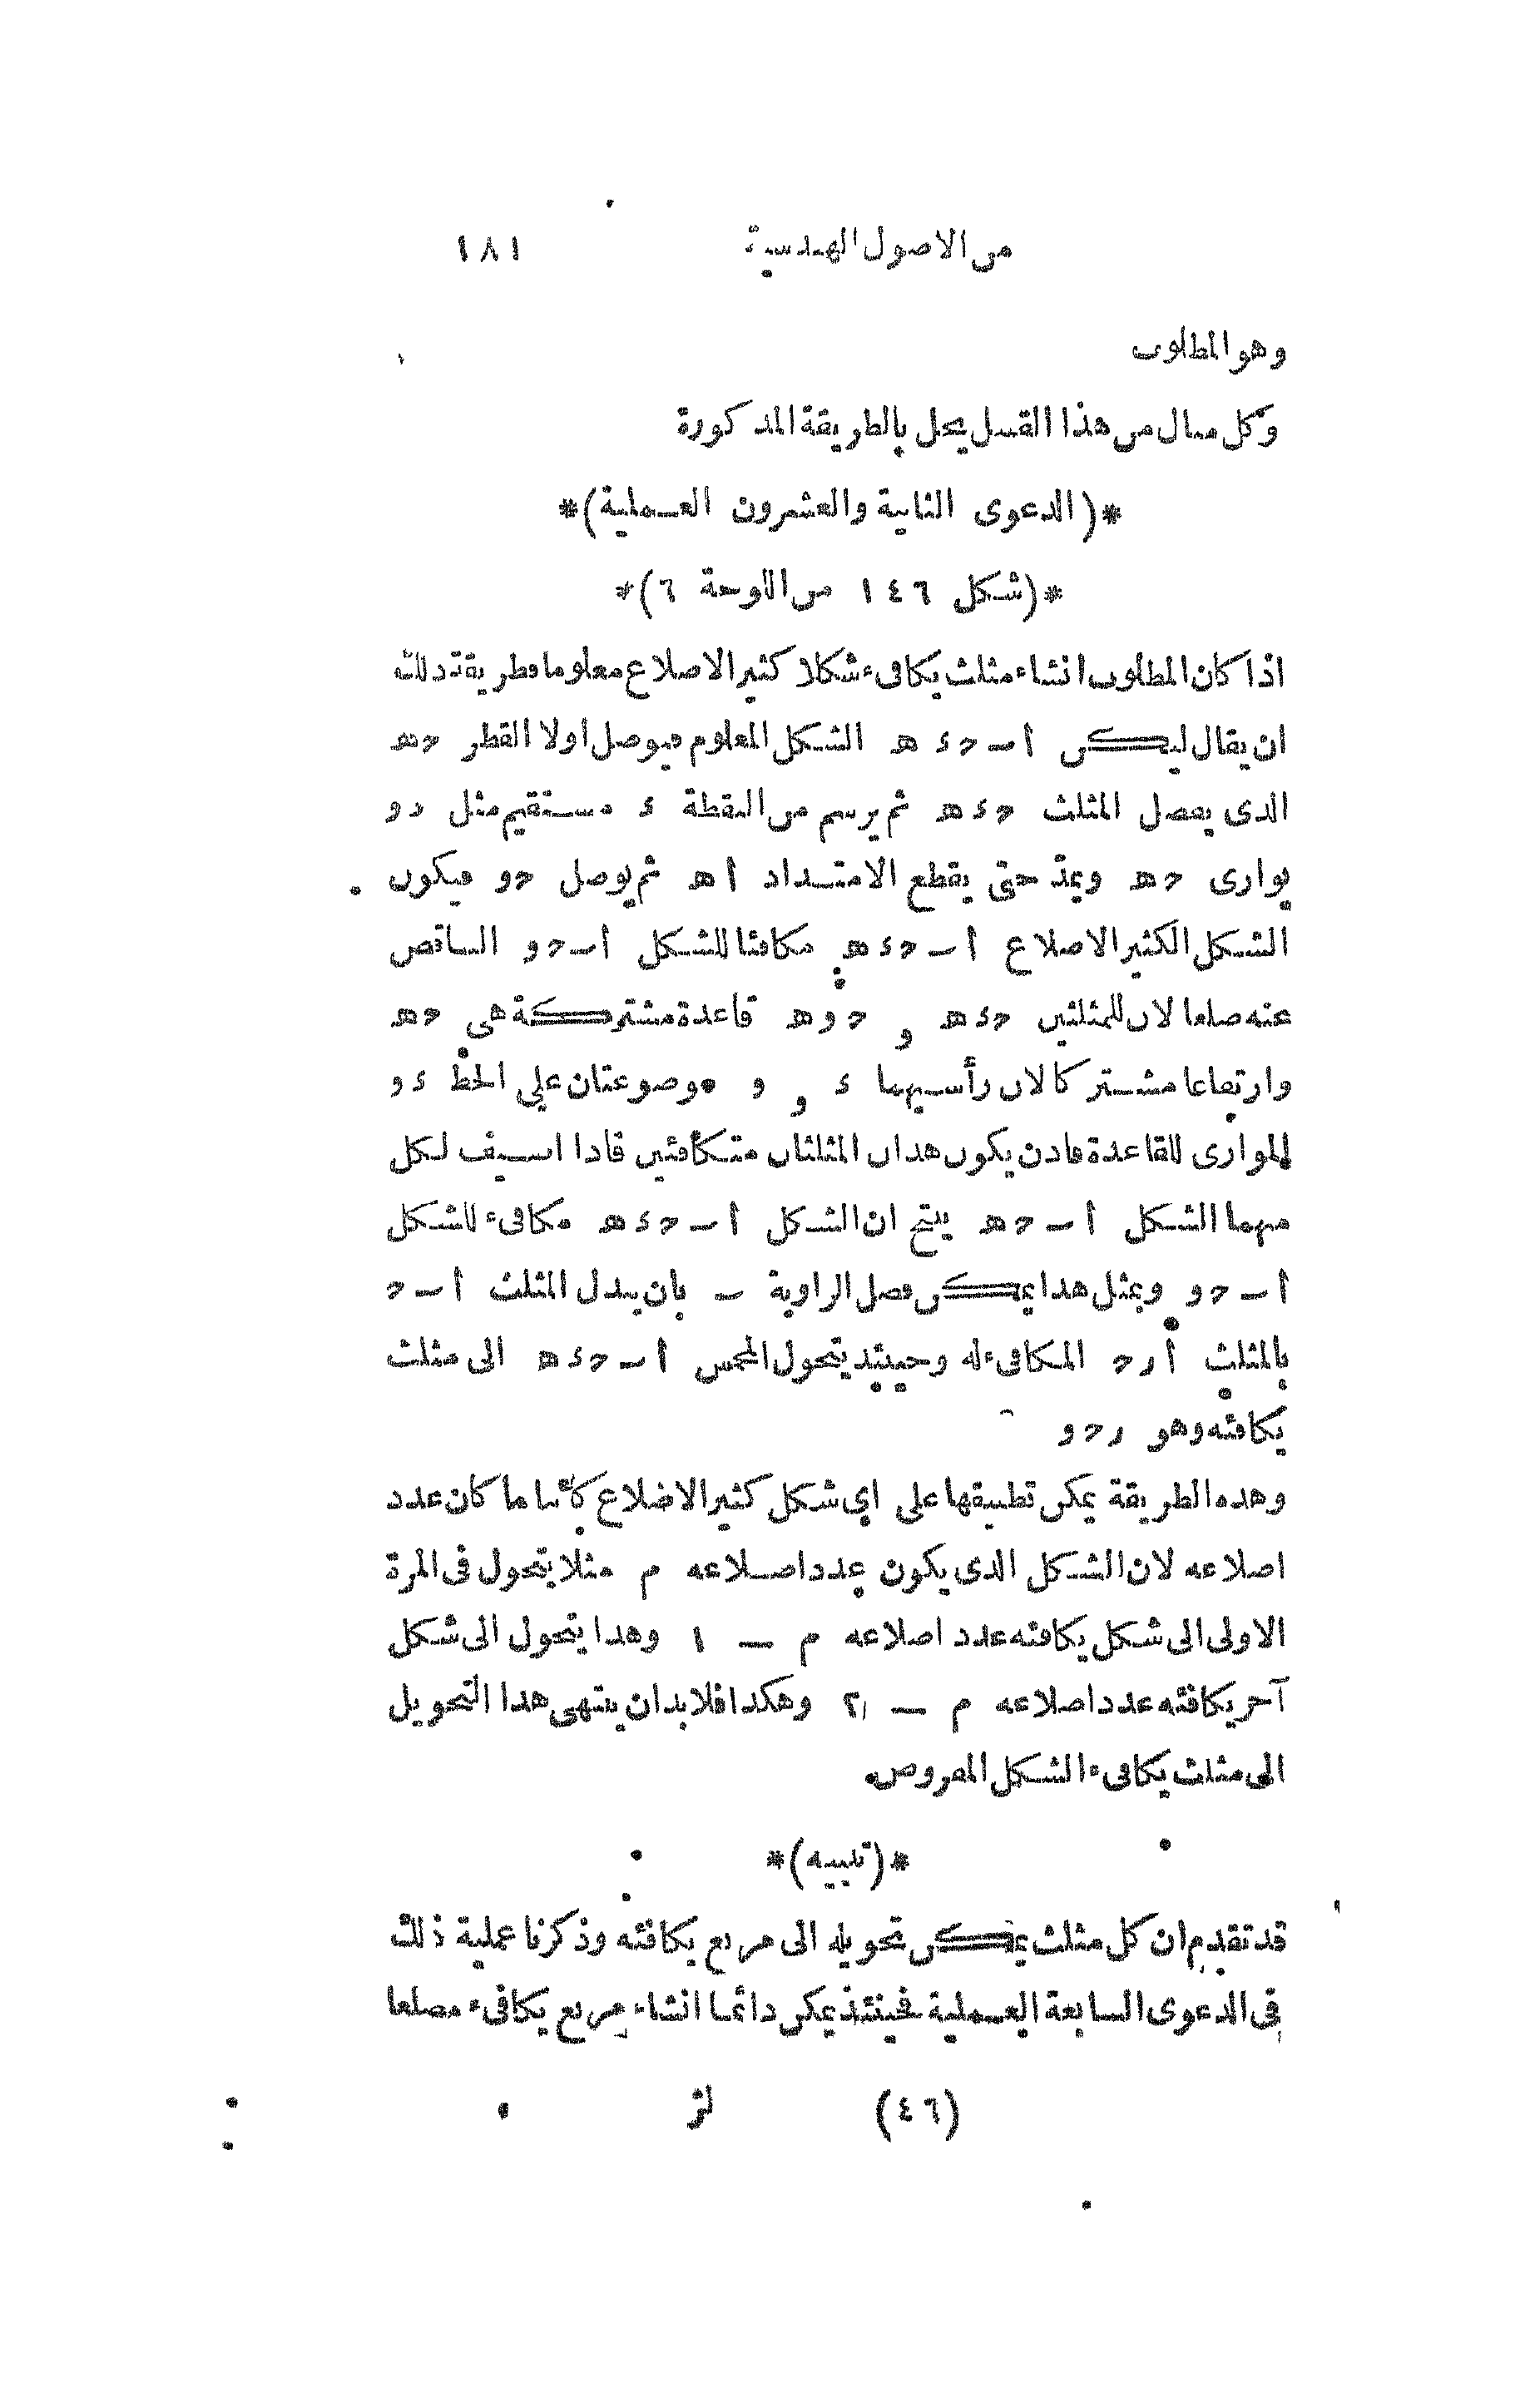 من الاصول الهندسية ١٨١
وهو المطلوب
وكل مثال من هذا القبيل يحل بالطريقة المذكورة
*(الدعوى الثانية والعشرون العملية)*
*(شكل ١٤٦ من اللوحة ٦)*
اذا كان المطلوب انشاء مثلث يكافىء شكلا كثير الاضلاع معلوما فطريقة ذلك
ان يقال ليكن ا ب ح ء ه الشكل المعلوم فيوصل اولا القطر ح ه
الذى يفصل المثلث ح ء ه ثم يرسم من النقطة ء مستقيم مثل د و
يوازى ح ه ويمدّ حتى يقطع الامتداد ا ه ثم يوصل ح و فيكون
الشكل الكثير الاضلاع ا ب ح ء ه مكافئا للشكل ا ب ح و الناقص
عنه ضلعا لان للمثلثين ح ء ه و ح و ه قاعدة مشتركة هى ح ه
وارتفاعا مشتركا لان رأسيهما ء و و موضوعتان على الخط ء و
الموازى للقاعدة فاذن يكون هذان المثلثان متكافئين فاذا اضيف لكل
منهما الشكل ا ب ح ه ينتج ان الشكل ا ب ح ء ه مكافىء للشكل
ا ب ح و وبمثل هذا يمكن فصل الزاوية ب بان يبدل المثلث ا ب ح
بالمثلث ا ر ح المكافىء له وحينئذ يتحول المخمس ا ب ح ء ه الى مثلث
يكافئه وهو ر ح و
وهذه الطريقة يمكن تطبيقها على اى شكل كثير الاضلاع كائنا ما كان عدد
اضلاعه لان الشكل الذى يكون عدد اضلاعه م مثلا يتحول فى المرة
الاولى الى شكل يكافئه عدد اضلاعه م — ١ وهذا يتحول الى شكل
آخر يكافئه عدد اضلاعه م — ٢ وهكذا فلا بد ان ينتهى هذا التحويل
الى مثلث يكافىء الشكل المفروض
*(تنبيه)*
قد تقدم ان كل مثلث يمكن تحويله الى مربع يكافئه وذكرنا عملية ذلك
فى الدعوى السابعة العملية فحينئذ يمكن دائما انشاء مربع يكافىء مضلعا
(٤٦) لز